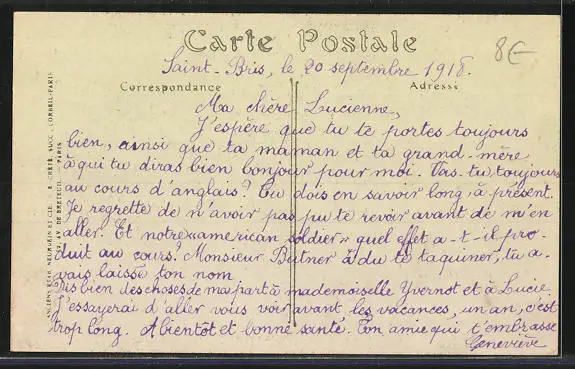 Carte Postale
8€
Saint-Bris, le 20 septembre 1918.
Correspondance
Adresse
Ma chère Lucienne,
J'espère que tu te portes toujours
bien, ainsi que ta maman et ta grand-mère
à qui tu diras bien bonjour pour moi. Vas-tu toujours
au cours d'anglais? Tu dois en savoir long, à présent.
Je regrette de n'avoir pas pu te revoir avant de m'en
aller. Et notre «american soldier» quel effet a-t-il pro-
duit au cours? Monsieur Butner a dû te taquiner, tu a-
vais laissé ton nom
Dis bien des choses de ma part à mademoiselle Yvernot et à Lucie
J'essayerai d'aller vous voir avant les vacances, un an, c'est
trop long. A bientôt et bonne santé. Ton amie qui t'embrasse
Geneviève
ANCIENS ETAB. NEURDEIN ET CIE. E. CRÉTÉ, SUCC. CORBEIL-PARIS
52, AV. DE BRETEUIL. PARIS